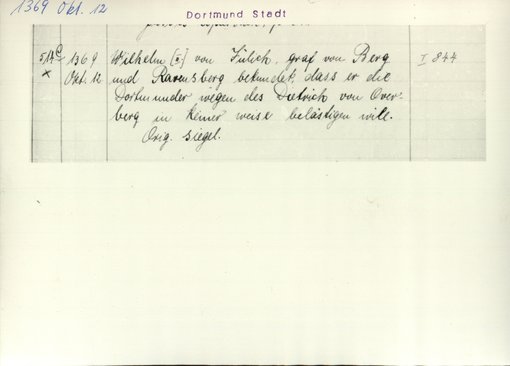 1369 Okt. 12
Dortmund Stadt
514c 1369 Wilhelm [II] von Jülich, graf von Berg I 844
x Okt. 12 und Ravensberg bekundet, dass er die
Dortmunder wegen des Dietrich von Over-
berg in keiner weise belästigen will.
Orig. Siegel.